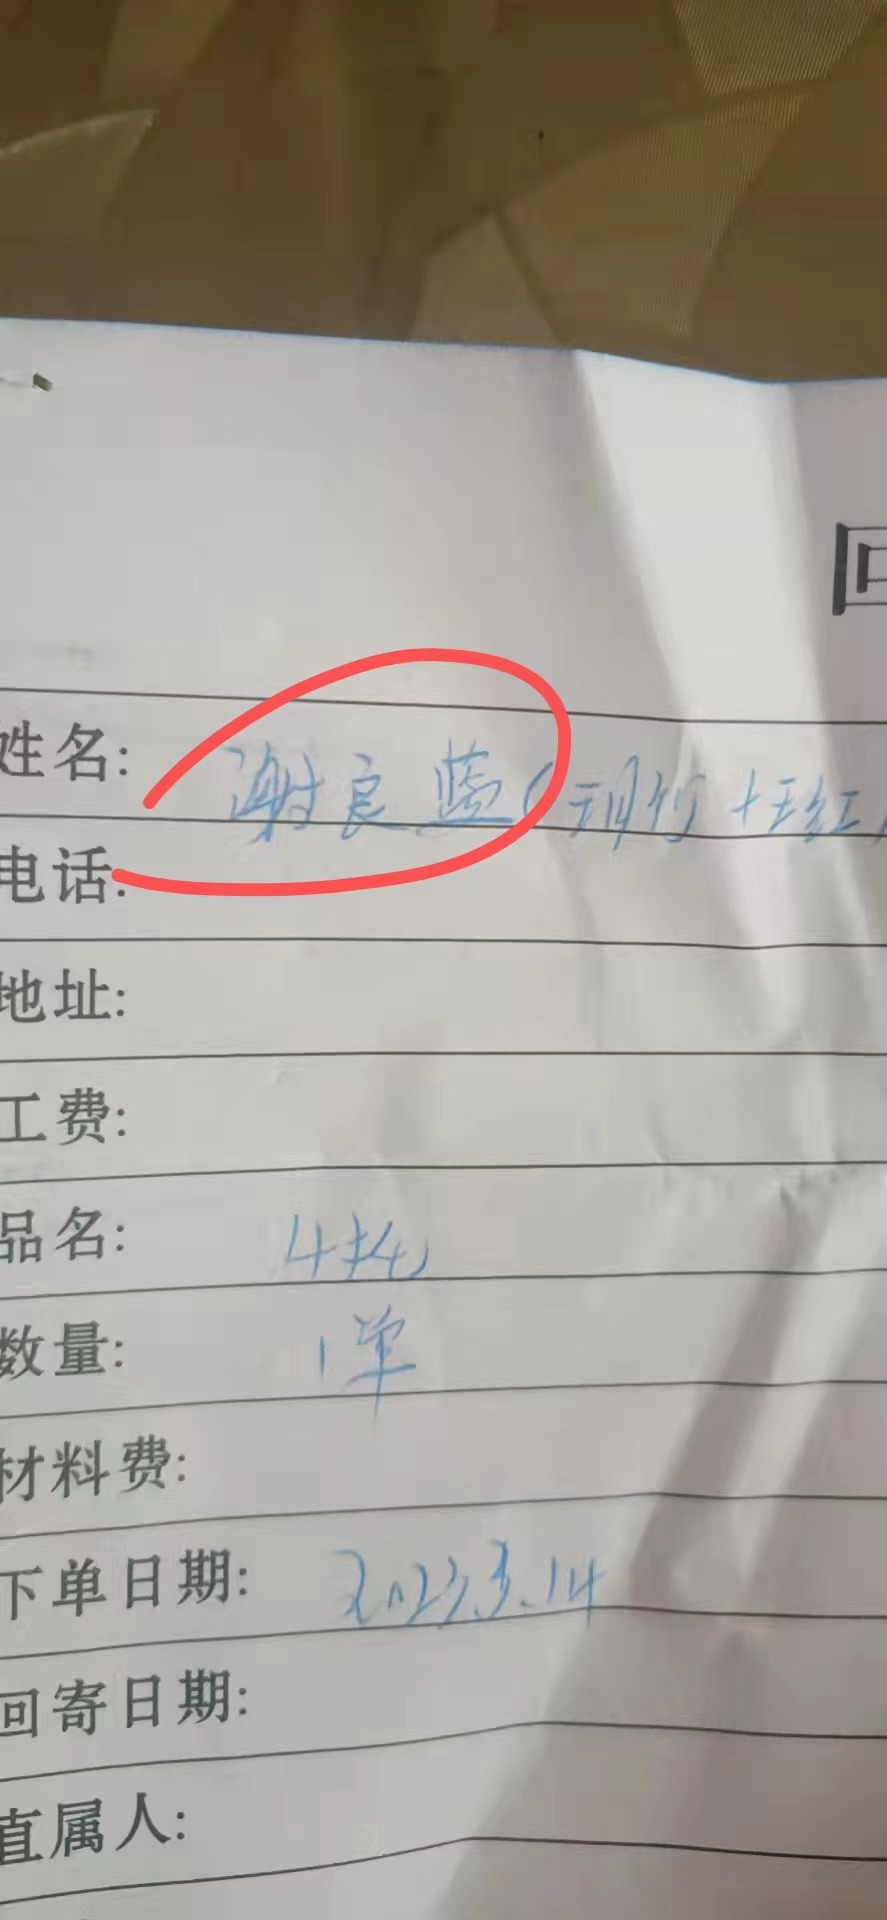 回
姓名: 谢良蓝(
电话:
地址:
工费:
品名: 4
数量: 1单
材料费:
下单日期: 2023.3.14
回寄日期:
直属人: